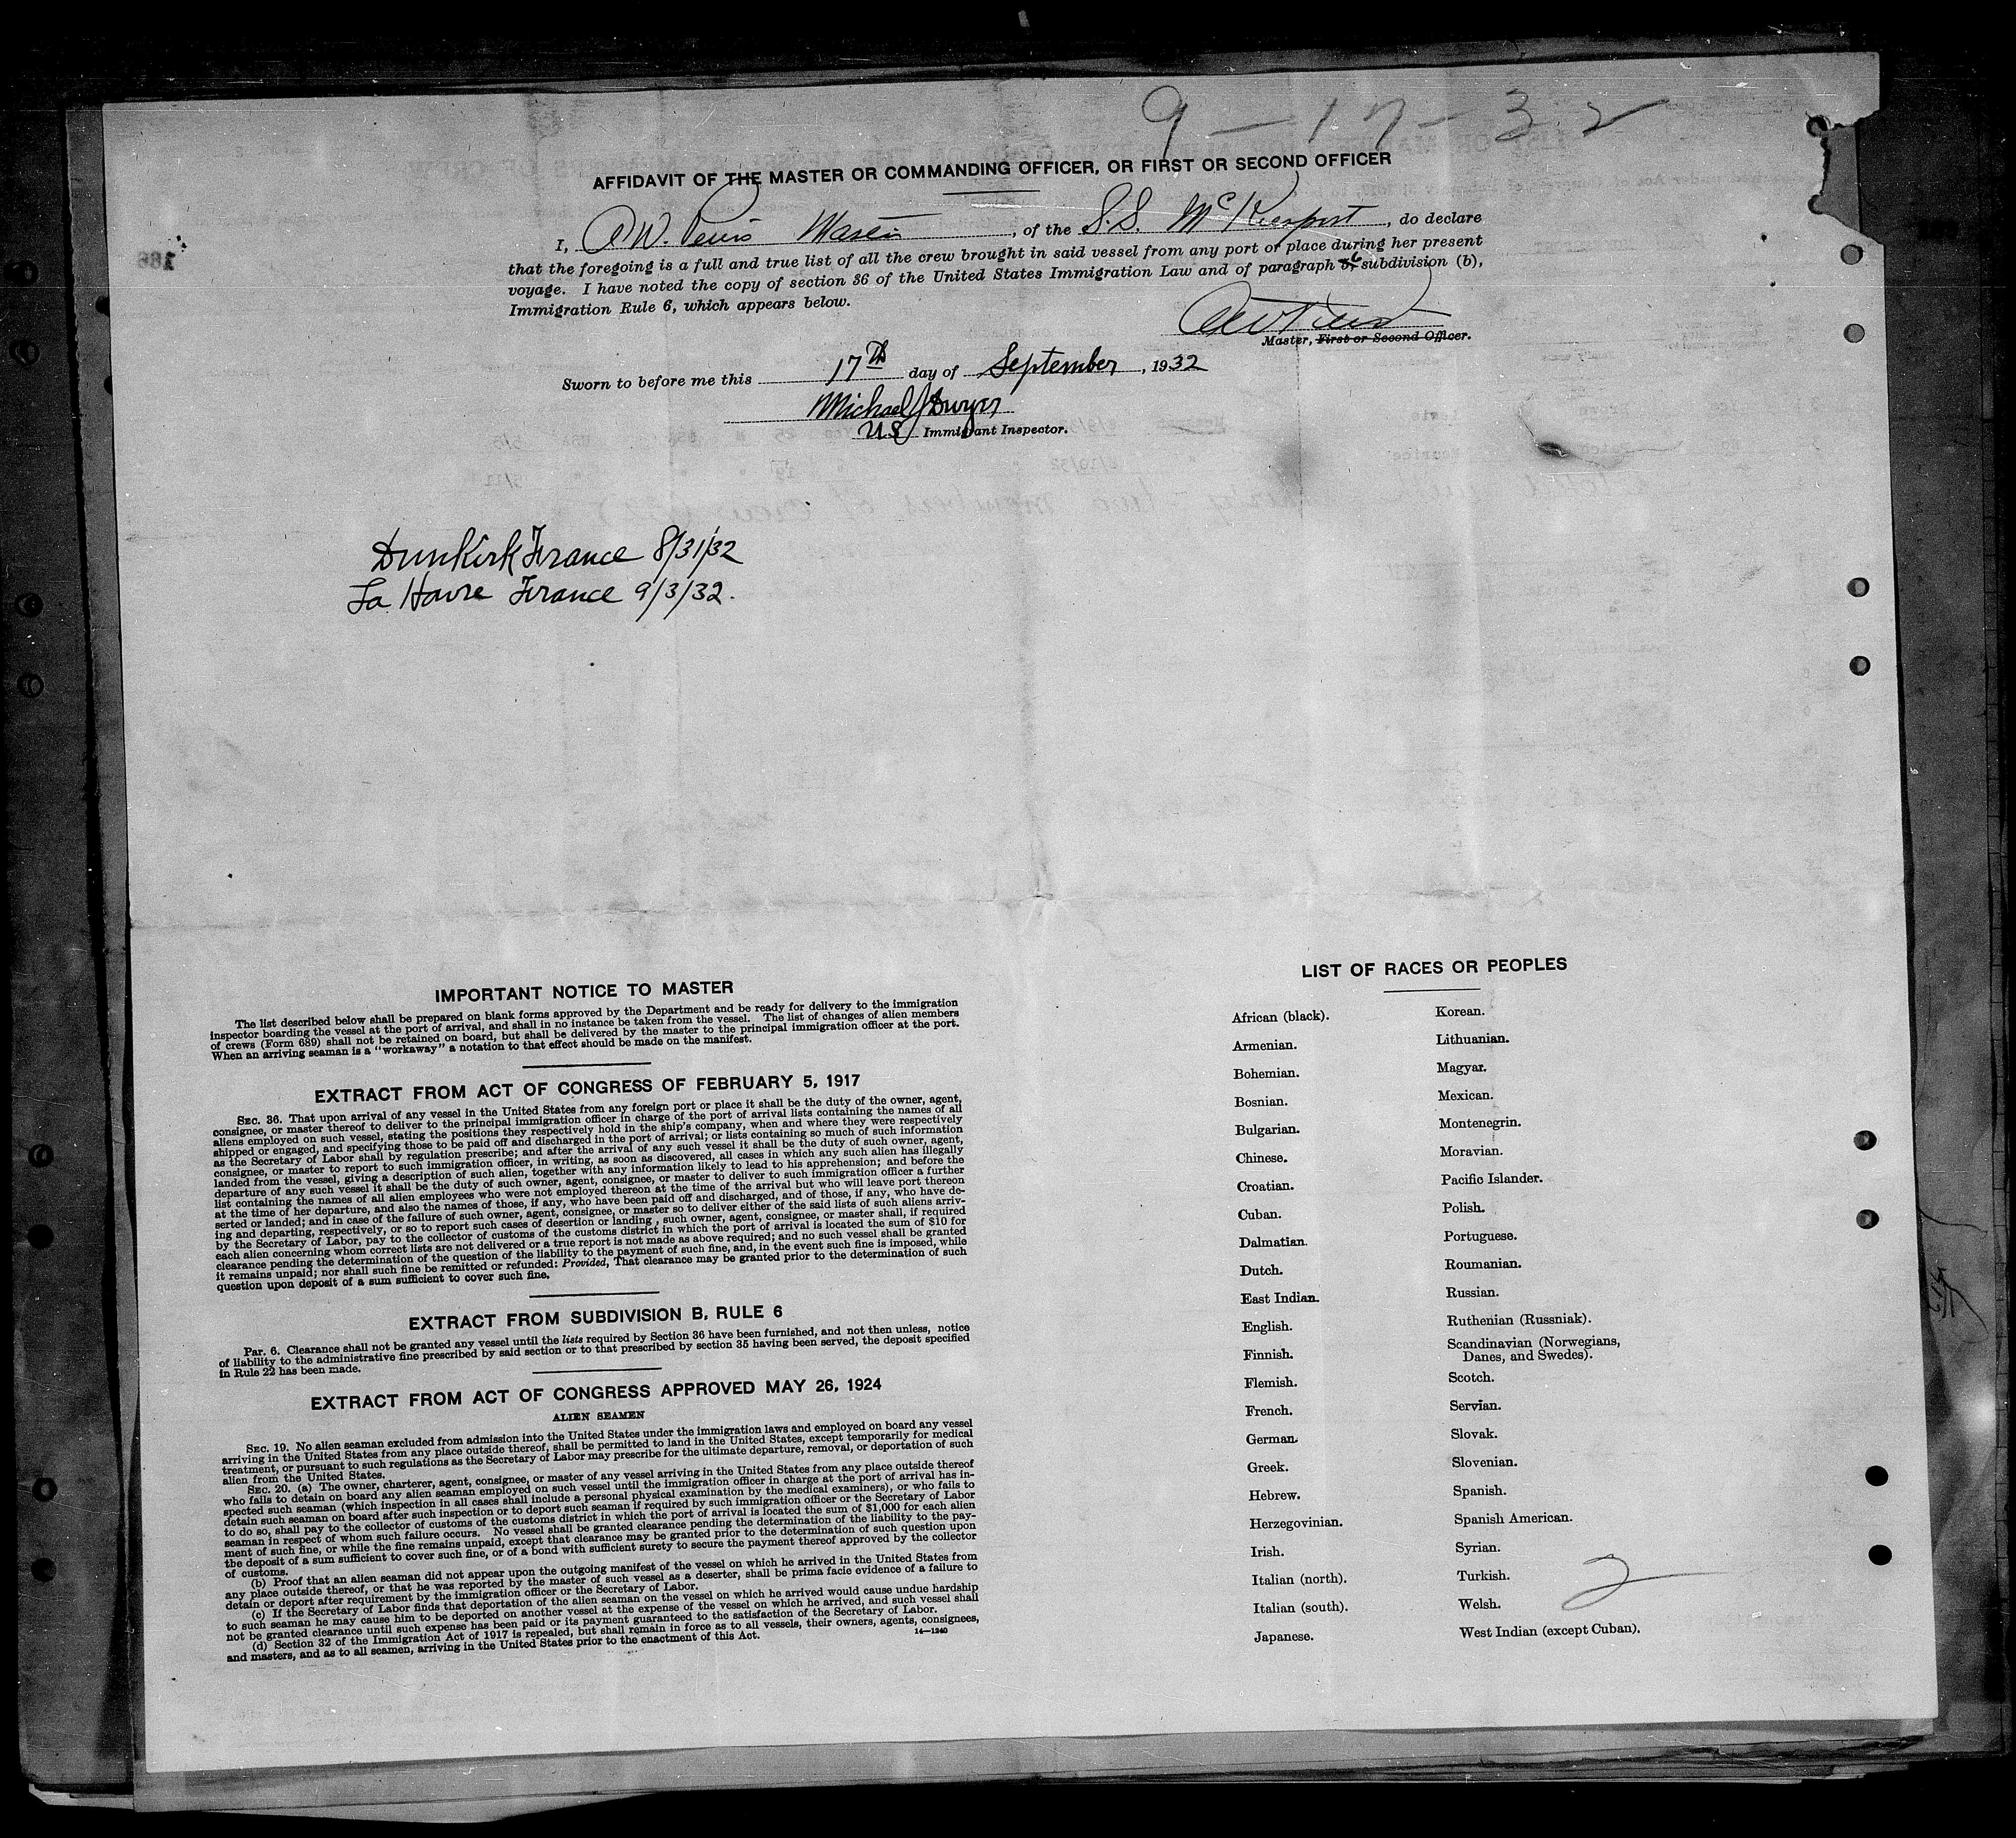 9-17-32
AFFIDAVIT OF THE MASTER OR COMMANDING OFFICER, OR FIRST OR SECOND OFFICER
I, W. Master, of the S.S. McKeesport, do declare
that the foregoing is a full and true list of all the crew brought in said vessel from any port or place during her present
voyage. I have noted the copy of section 36 of the United States Immigration Law and of paragraph 6 subdivision (b),
Immigration Rule 6, which appears below.
Master, First or Second Officer.
Sworn to before me this 17th day of September, 1932
Michael J Dwyer
US Immigrant Inspector.
Dunkirk France 8/31/32
La Havre France 9/3/32.
IMPORTANT NOTICE TO MASTER
The list described below shall be prepared on blank forms approved by the Department and be ready for delivery to the immigration
inspector boarding the vessel at the port of arrival, and shall in no instance be taken from the vessel. The list of changes of alien members
of crews (Form 689) shall not be retained on board, but shall be delivered by the master to the principal immigration officer at the port.
When an arriving seaman is a "workaway" a notation to that effect should be made on the manifest.
EXTRACT FROM ACT OF CONGRESS OF FEBRUARY 5, 1917
SEC. 36. That upon arrival of any vessel in the United States from any foreign port or place it shall be the duty of the owner, agent,
consignee, or master thereof to deliver to the principal immigration officer in charge of the port of arrival lists containing the names of all
aliens employed on such vessel, stating the positions they respectively hold in the ship's company, when and where they were respectively
shipped or engaged, and specifying those to be paid off and discharged in the port of arrival; or lists containing so much of such information
as the Secretary of Labor shall by regulation prescribe; and after the arrival of any such vessel it shall be the duty of such owner, agent,
consignee, or master to report to such immigration officer, in writing, as soon as discovered, all cases in which any such alien has illegally
landed from the vessel, giving a description of such alien, together with any information likely to lead to his apprehension; and before the
departure of any such vessel it shall be the duty of such owner, agent, consignee, or master to deliver to such immigration officer a further
list containing the names of all alien employees who were not employed thereon at the time of the arrival but who will leave port thereon
at the time of her departure, and also the names of those, if any, who have been paid off and discharged, and of those, if any, who have de-
serted or landed; and in case of the failure of such owner, agent, consignee, or master so to deliver either of the said lists of such aliens arriv-
ing and departing, respectively, or so to report such cases of desertion or landing, such owner, agent, consignee, or master shall, if required
by the Secretary of Labor, pay to the collector of customs of the customs district in which the port of arrival is located the sum of $10 for
each alien concerning whom correct lists are not delivered or a true report is not made as above required; and no such vessel shall be granted
clearance pending the determination of the question of the liability to the payment of such fine, and, in the event such fine is imposed, while
it remains unpaid; nor shall such fine be remitted or refunded: Provided, That clearance may be granted prior to the determination of such
question upon deposit of a sum sufficient to cover such fine.
EXTRACT FROM SUBDIVISION B, RULE 6
Par. 6. Clearance shall not be granted any vessel until the lists required by Section 36 have been furnished, and not then unless, notice
of liability to the administrative fine prescribed by said section or to that prescribed by section 35 having been served, the deposit specified
in Rule 22 has been made.
EXTRACT FROM ACT OF CONGRESS APPROVED MAY 26, 1924
ALIEN SEAMEN
SEC. 19. No alien seaman excluded from admission into the United States under the immigration laws and employed on board any vessel
arriving in the United States from any place outside thereof, shall be permitted to land in the United States, except temporarily for medical
treatment, or pursuant to such regulations as the Secretary of Labor may prescribe for the ultimate departure, removal, or deportation of such
alien from the United States.
SEC. 20. (a) The owner, charterer, agent, consignee, or master of any vessel arriving in the United States from any place outside thereof
who fails to detain on board any alien seaman employed on such vessel until the immigration officer in charge at the port of arrival has in-
spected such seaman (which inspection in all cases shall include a personal physical examination by the medical examiners), or who fails to
detain such seaman on board after such inspection or to deport such seaman if required by such immigration officer or the Secretary of Labor
to do so, shall pay to the collector of customs of the customs district in which the port of arrival is located the sum of $1,000 for each alien
seaman in respect of whom such failure occurs. No vessel shall be granted clearance pending the determination of the liability to the pay-
ment of such fine, or while the fine remains unpaid, except that clearance may be granted prior to the determination of such question upon
the deposit of a sum sufficient to cover such fine, or of a bond with sufficient surety to secure the payment thereof approved by the collector
of customs.
(b) Proof that an alien seaman did not appear upon the outgoing manifest of the vessel on which he arrived in the United States from
any place outside thereof, or that he was reported by the master of such vessel as a deserter, shall be prima facie evidence of a failure to
detain or deport after requirement by the immigration officer or the Secretary of Labor.
(c) If the Secretary of Labor finds that deportation of the alien seaman on the vessel on which he arrived would cause undue hardship
to such seaman he may cause him to be deported on another vessel at the expense of the vessel on which he arrived, and such vessel shall
not be granted clearance until such expense has been paid or its payment guaranteed to the satisfaction of the Secretary of Labor.
(d) Section 32 of the Immigration Act of 1917 is repealed, but shall remain in force as to all vessels, their owners, agents, consignees,
and masters, and as to all seamen, arriving in the United States prior to the enactment of this Act.
14—1240
LIST OF RACES OR PEOPLES
African (black).
Armenian.
Bohemian.
Bosnian.
Bulgarian.
Chinese.
Croatian.
Cuban.
Dalmatian.
Dutch.
East Indian.
English.
Finnish.
Flemish.
French.
German.
Greek.
Hebrew.
Herzegovinian.
Irish.
Italian (north).
Italian (south).
Japanese.
Korean.
Lithuanian.
Magyar.
Mexican.
Montenegrin.
Moravian.
Pacific Islander.
Polish.
Portuguese.
Roumanian.
Russian.
Ruthenian (Russniak).
Scandinavian (Norwegians,
Danes, and Swedes).
Scotch.
Servian.
Slovak.
Slovenian.
Spanish.
Spanish American.
Syrian.
Turkish.
Welsh.
West Indian (except Cuban).
2